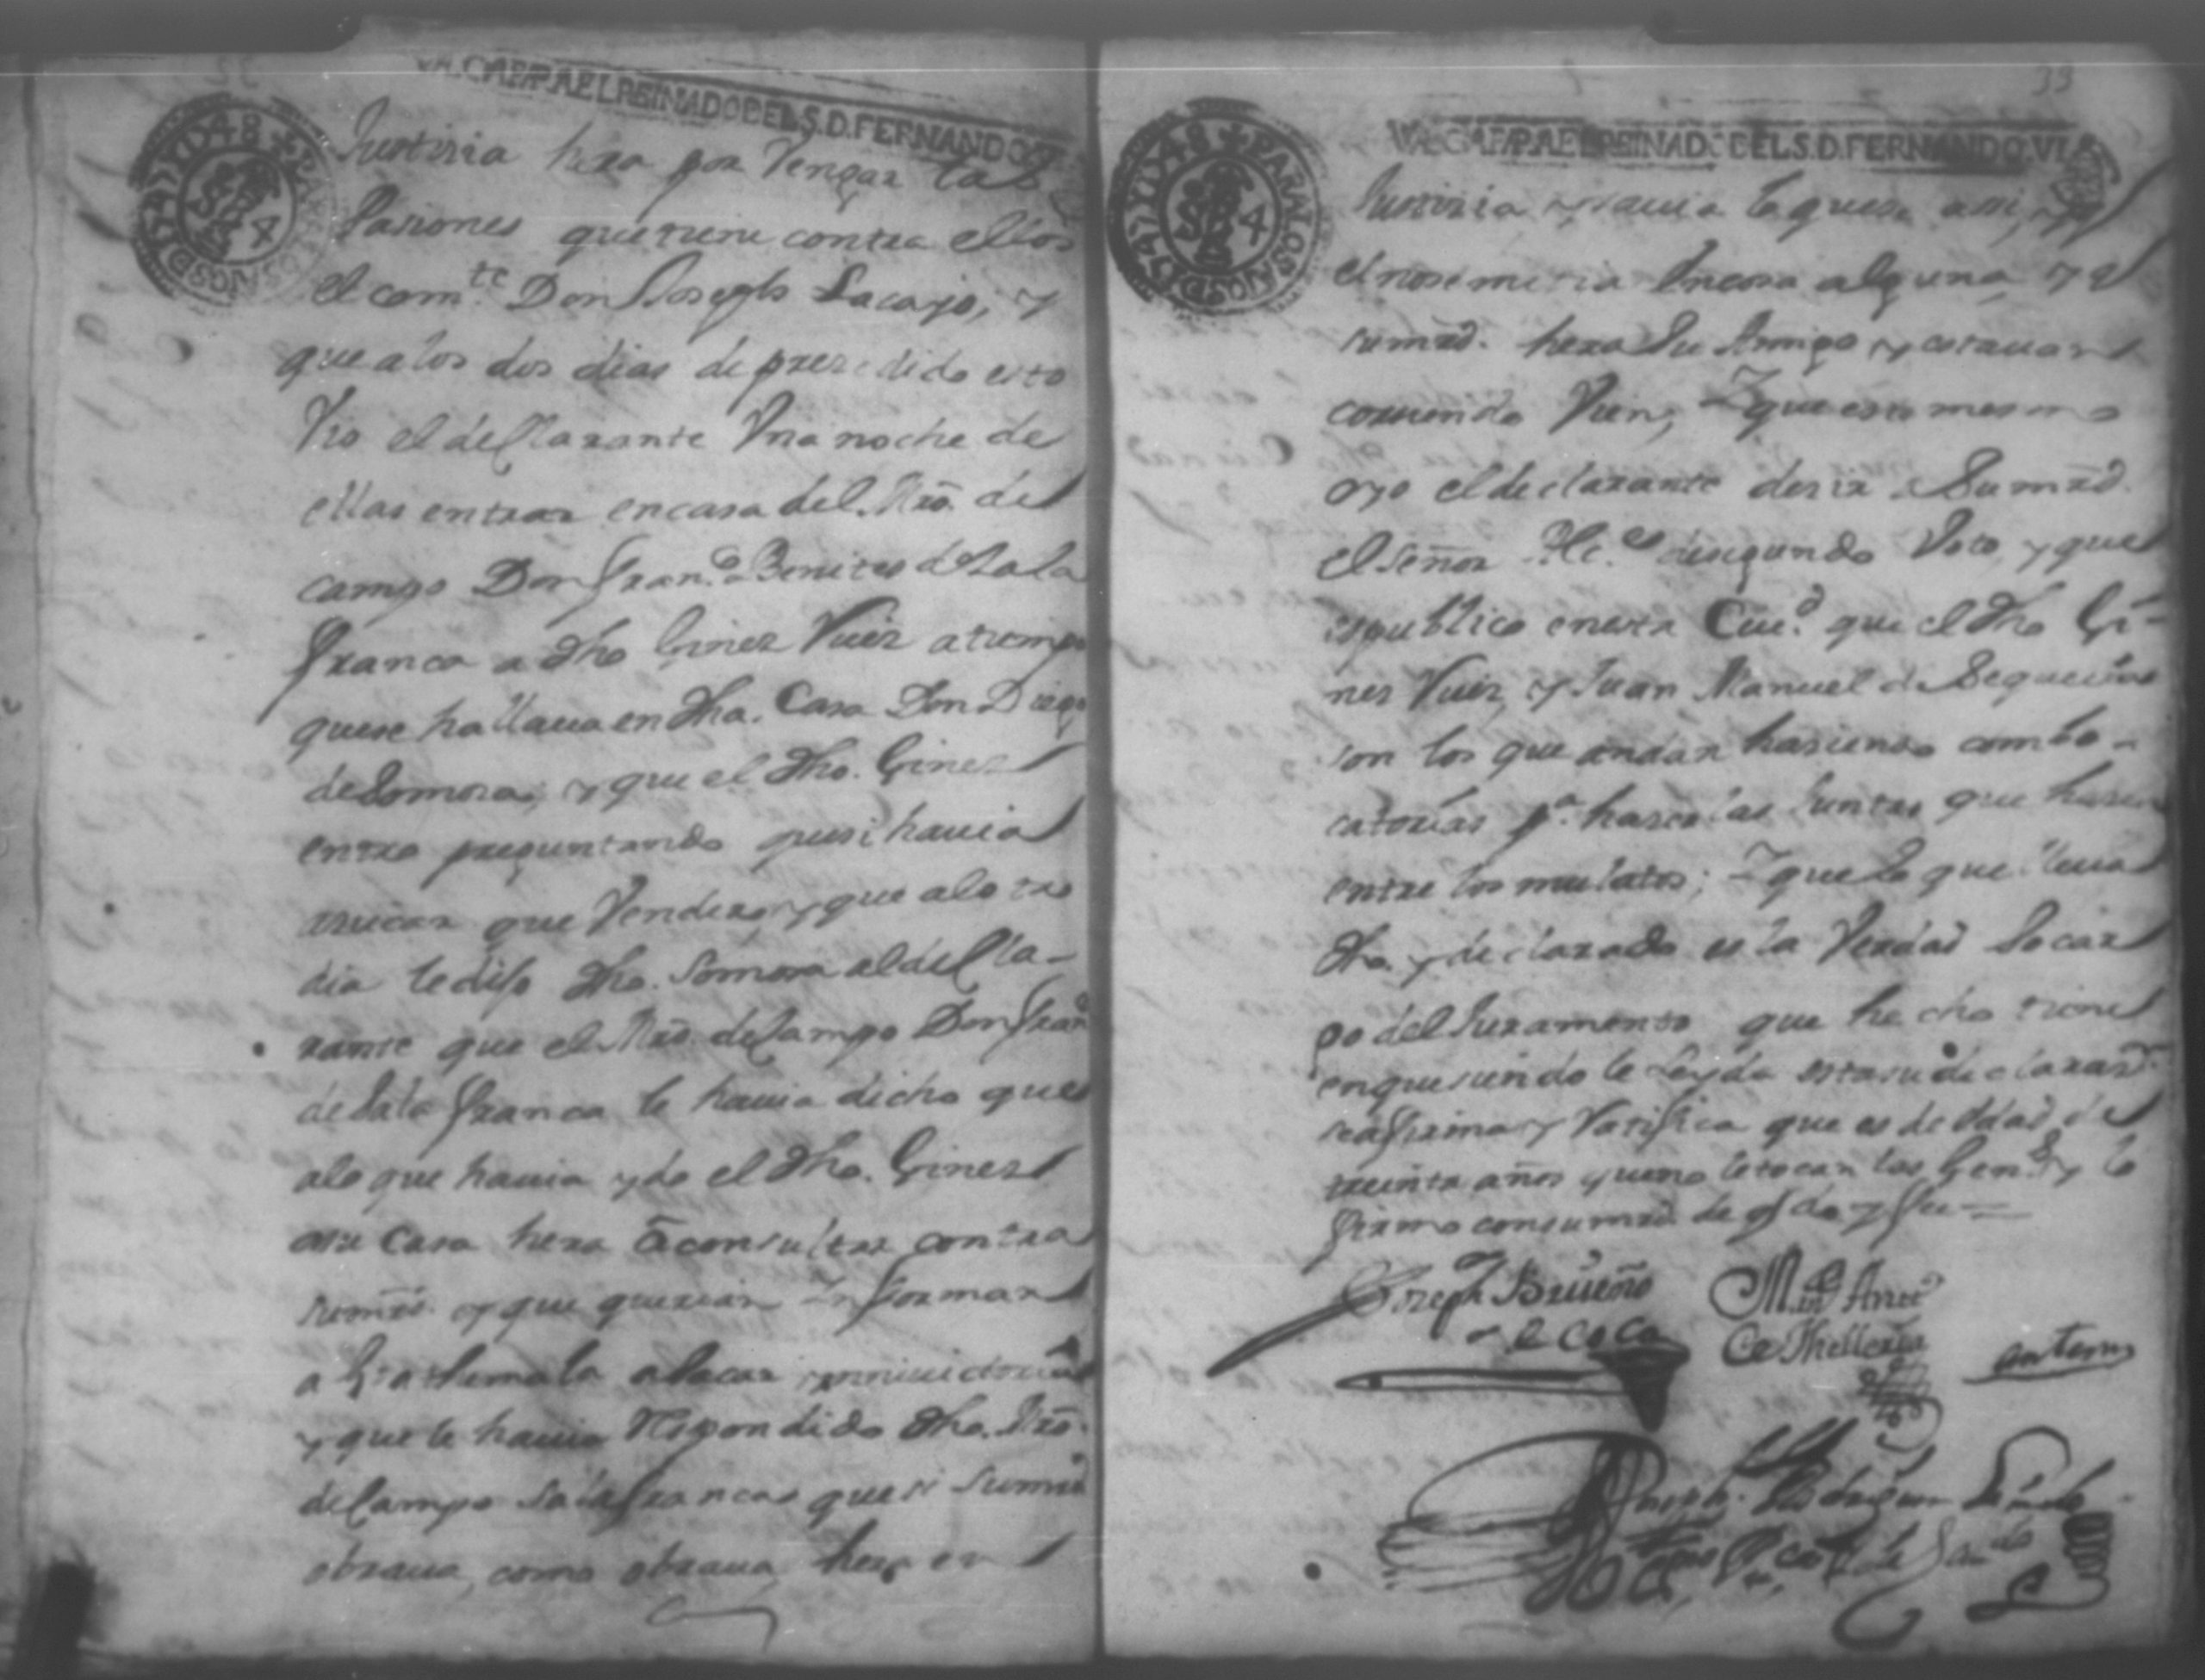 VALGAE PA EL REINADO DEL S. D. FERNANDO VI
Justisia hera por Vengar las
Pasiones que tiene contra ellos
el com.te Don Joseph Lacayo, y
que a los dos dias de presedido esto
Vio el declarante Vna noche de
ellas entrar en casa del Mro de
campo Don Fran.co Benites de Sala
franca a dho Ginez Vuiz a tiempo
que se hallaua en dha. Casa Don Diego
de Somosa, y que el dho. Ginez
entro preguntando que si hauia
asucar que Vender, y que al otro
dia le dijo dho. Somosa al decla-
rante que el Mro de Campo Don Fran.co
de Sala franca le hauia dicho que
a lo que hauia ydo el dho. Ginez
a su Casa hera a aconsultar contra
su md. y que querian Informar
a Goathemala a sacar
y que le hauia Respondido dho. Mro.
de Campo Salafranca que si su md
obraua, como obraua, hera en
33
VALGAE PA EL REINADO DEL S. D. FERNANDO VI
Justisia, y sauia lo que se asia, y q
el no se metia En cosa alguna, y q
su md. hera Su Amigo y estauan
corriendo Vien; Y que esto mesmo
oyo el declarante desir a Su md.
el señor Alc.e de segundo Voto, y que
es publico en esta Ciu.d que el dho Gi-
nes Vuiz, y Juan Manuel de Sequeira
son los que andan hasiendo combo-
catorias p.a haser las Juntas que hasen
entre los mulatos; Y que lo que lleua
dho. y declarado es la Verdad So car
go del Juramento que hecho tiene
en que siendo le Leyda esta su declaraz.n
se afirma y Ratifica que es de Edad de
treinta años y que no le tocan las Gen.s y lo
firmo con su md. de q doy fee =
Joseph Brueño
de Coca
M.el Arze
Ce Thelleria
ante my
Joseph